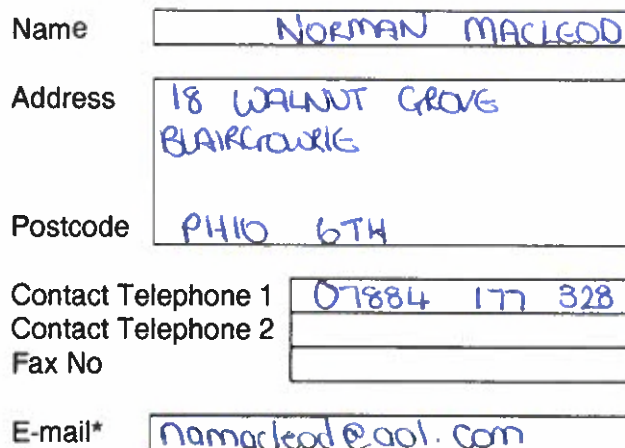 Name NORMAN MACLEOD
Address 18 WALNUT GROVE
BLAIRGOWRIE
Postcode PH10 6TH
Contact Telephone 1 07884 177 328
Contact Telephone 2
Fax No
E-mail* namacleod@aol.com